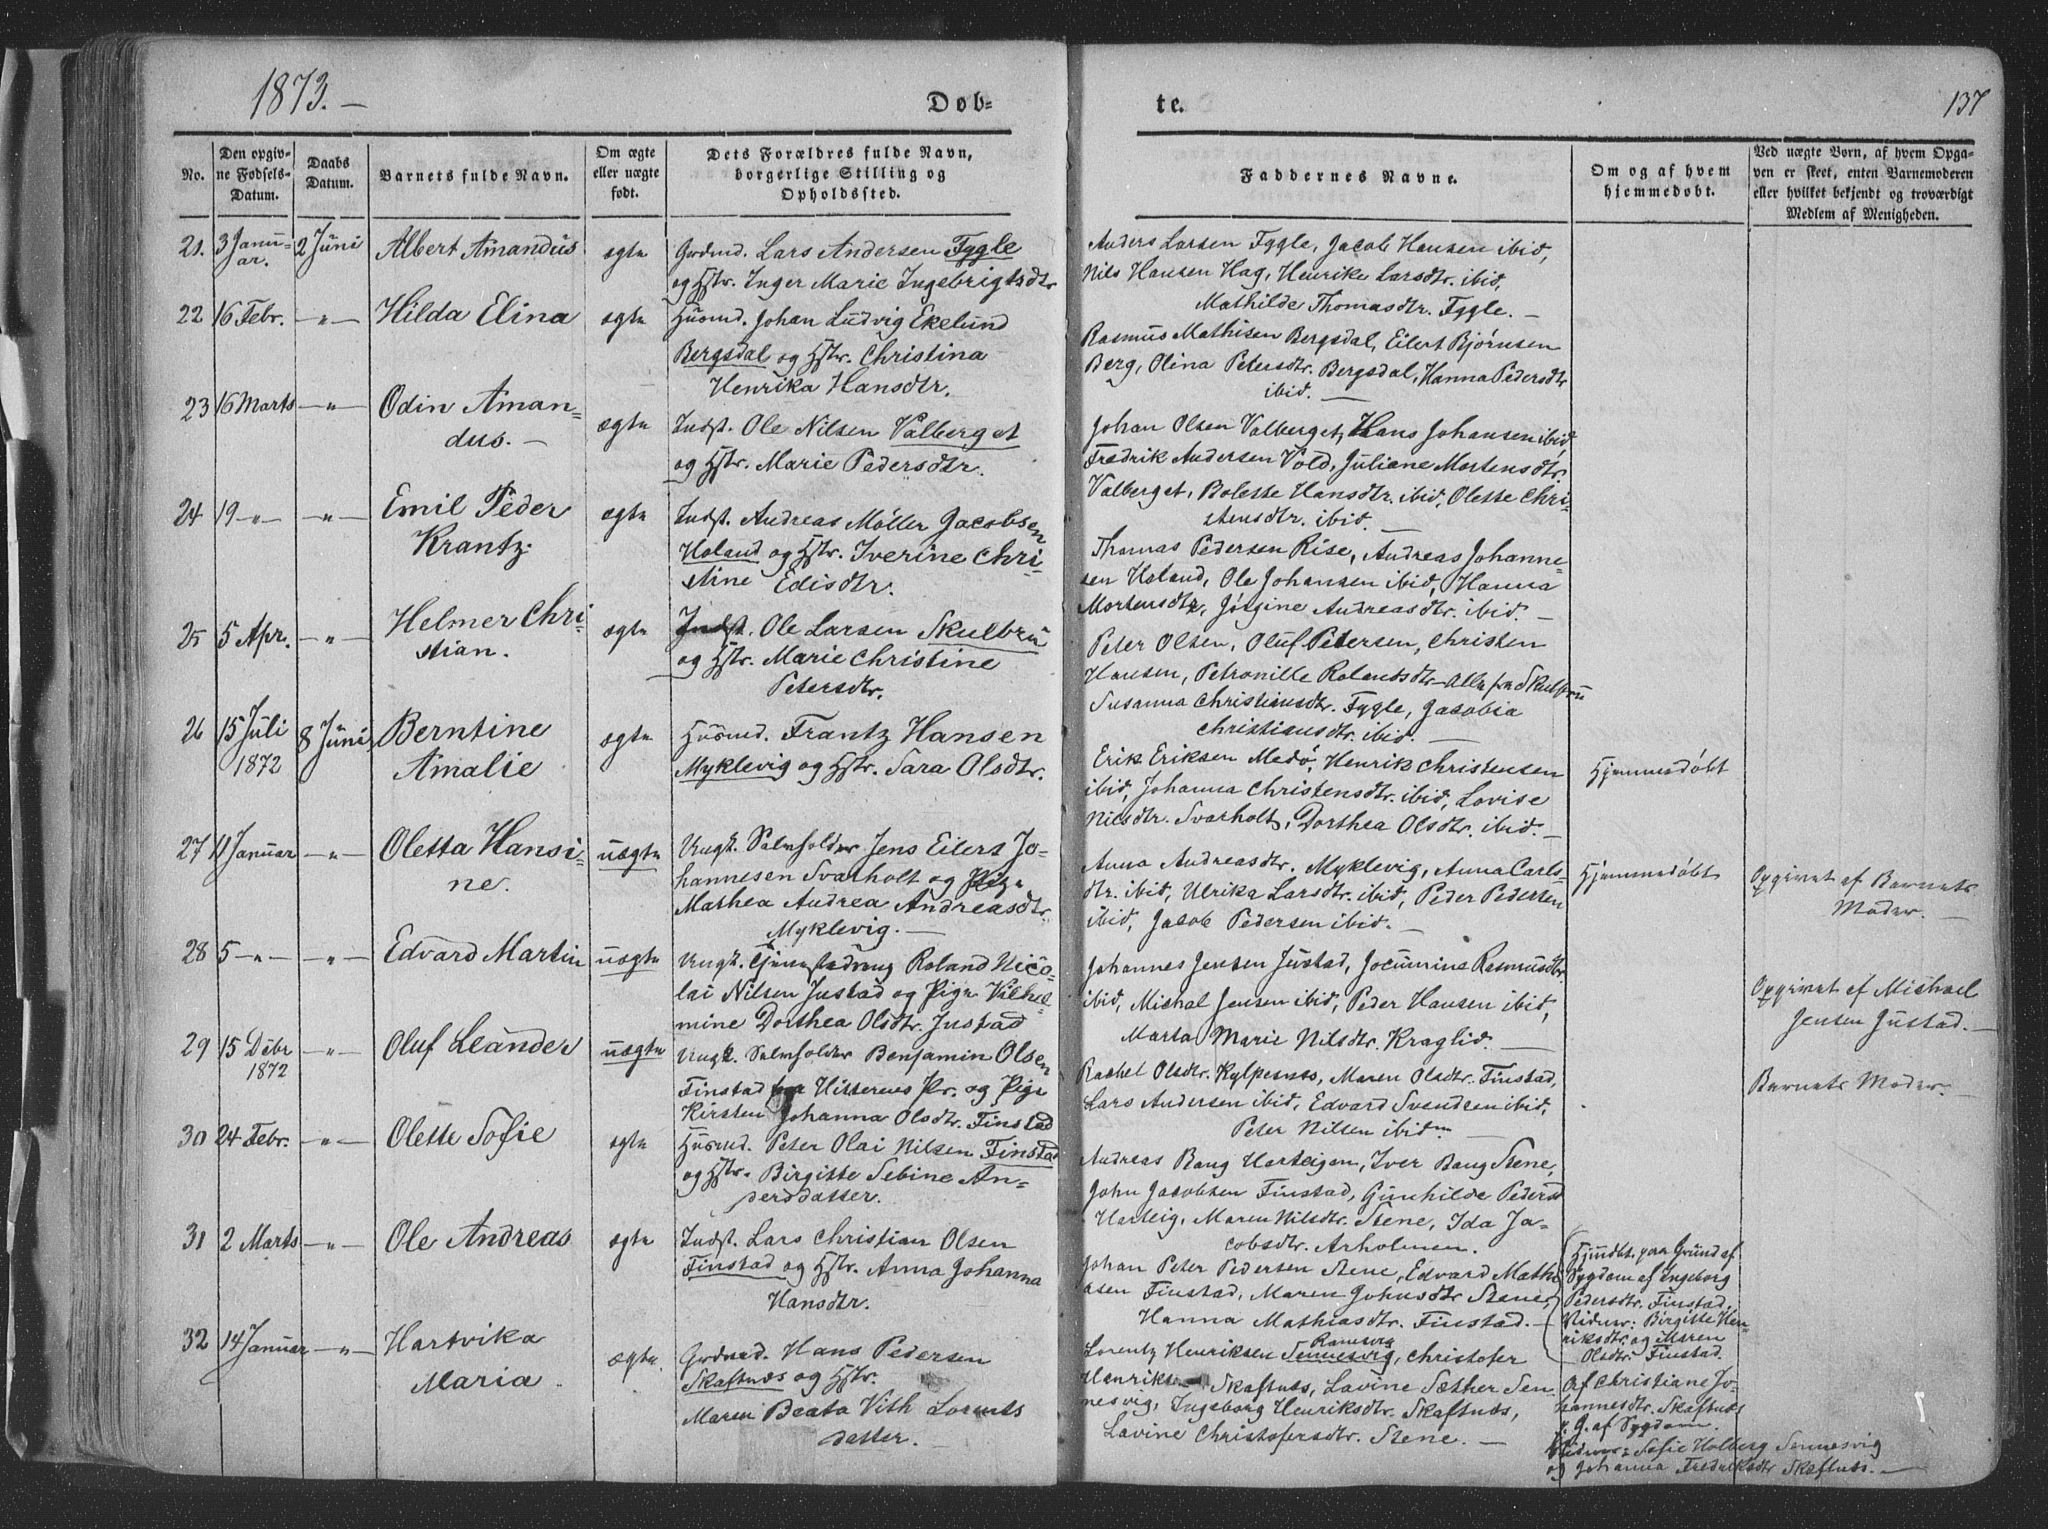 1873. —
Døb-
te.
137
No.
Den opgiv-
ne Fødsels-
Datum.
Daabs
Datum.
Barnets fulde Navn.
Om ægte
eller uægte
født.
Dets Forældres fulde Navn,
borgerlige Stilling og
Opholdssted.
Faddernes Navne.
Om og af hvem
hjemmedøbt.
Ved uægte Børn, af hvem Opga-
ven er skeet, enten Barnemoderen
eller hvilket bekjendt og troværdigt
Medlem af Menigheden.
21. 3 Janu- 2 Juni Albert Amandus ægte Grdmd. Lars Andersen Fygle
ar.
og Hstr. Inger Marie Ingebrigtsdtr
Anders Larsen Fygle, Jacob Hansen ibid,
Nils Hansen Hag, Henrike Larsdtr. ibid,
Mathilde Thomasdtr. Fygle. —
22 16 Febr. —"— Hilda Elina ægte Husmd. Johan Ludvig Ekelund
Bergsdal og Hstr. Christina
Henrika Hansdtr.
Rasmus Mathisen Bergsdal, Eilert Bjørnsen
Berg, Olina Petersdtr. Bergsdal, Hanna Pedersdtr
ibid. —
23 16 Marts —"— Odin Aman- ægte Indst. Ole Nilsen Valberget
dus. —
og Hstr. Marie Pedersdtr.
Johan Olsen Valberget, Hans Johansen ibid,
Fredrik Andersen Vold, Juliane Mortensdtr.
Valberget, Bolette Hansdtr. ibid, Olette Chri-
stensdtr. ibid.
24 19 —"— —"— Emil Peder ægte Indst. Andreas Møller Jacobsen
Krantz.
Holand og Hstr. Iverine Chri-
stine Edisdtr.
Thomas Pedersen Rise, Andreas Johanne-
sen Holand, Ole Johansen ibid, Hanna
Mortensdtr, Jørgine Andreasdtr. ibid. —
25 5 Apr. —"— Helmer Chri- ægte Indst. Ole Larsen Skulbru
stian.
og Hstr. Marie Christine
Petersdtr.
Peter Olsen, Oluf Petersen, Christen
Hansen, Petronille Rolandsdtr — Alle fra Skulbru
Susanna Christiansdtr. Fygle, Jacobia
Christiansdtr. ibid. —
26 15 Juli 8 Juni Berntine ægte Husmd. Frantz Hansen
1872
Amalie
Myklevig og Hstr. Sara Olsdtr.
Erik Eriksen Medø, Henrik Christensen
ibid, Johanna Christensdtr. ibid, Lovise
Nilsdtr. Svarholt, Dorthea Olsdtr. ibid. —
Hjemmedøbt
27 11 Januar —"— Oletta Hansi- uægte Ungk. Selvholder Jens Eilert Jo-
ne.
hannesen Svarholt og Pige
Mathea Andrea Andreasdtr.
Myklevig. —
Anna Andreasdtr. Myklevig, Anna Carls-
dtr. ibid, Ulrika Larsdtr. ibid, Peder Pedersen
ibid, Jacob Pedersen ibid. —
Hjemmedøbt
Opgivet af Barnets
Moder. —
28 5 —"— —"— Edvard Martin uægte Ungk. Tjenestedreng Roland Nico-
lai Nilsen Justad og Pige Vilhel-
mine Dorthea Olsdtr. Justad
Johannes Jensen Justad, Jocumine Rasmusdtr
ibid, Michal Jensen ibid, Peder Hansen ibid,
Marta Marie Nilsdtr. Kraglid. —
Opgivet af Michael
Jensen Justad. —
29 15 Debr —"— Oluf Leander uægte Ungk. Selvholder Benjamin Olsen
1872
Finstad fra Hitterens Pr. og Pige
Kirsten Johanna Olsdtr. Finstad
Rachel Olsdtr. Kylpesnes, Maren Olsdtr. Finstad,
Lars Andersen ibid, Edvard Svendsen ibid,
Peter Nilsen ibidm
Barnets Moder. —
30 24 Febr. —"— Olette Sofie ægte Husmd. Peter Olai Nilsen Finstad
og Hstr. Birgitte Sebine An-
dersdatter.
Andreas Bang Harteigen, Iver Bang Stene,
John Jacobsen Finstad, Gunhilde Pedersd
Harteig, Maren Nilsdtr. Stene, Ida Ja-
cobsdtr. Arholmen.
31 2 Marts —"— Ole Andreas ægte Indst. Lars Christian Olsen
Finstad og Hstr. Anna Johanna
Hansdtr.
Johan Peter Pedersen Stene, Edvard Mathi-
asen Finstad, Maren Johnsdtr Stene,
Hanna Mathiasdtr. Finstad. —
Hjmdbt. paa Grund af
Sygdom af Ingeborg
Pedersdtr. Finstad.
Vidner: Birgitte Hen-
riksdtr. og Maren
Olsdtr. Finstad.
32 14 Januar —"— Hartvika ægte. Grdmd. Hans Pedersen
Maria
Skaftnæs og Hstr.
Maren Beata Vith Lorents
datter. —
Ramsvig
Lorentz Henriksen Sennesvig, Christofer
Henriksen Skaftnæs, Lavine Sæther Sen-
nesvig, Ingeborg Henriksdtr. Skaftnæs,
Lavine Christofersdtr. Stene. —
Af Christiane Jo-
hannesdtr. Skaftnæs
p. G. af Sygdom.
Vidner: Sofie Holberg Sennesvig
og Johanna Fredriksdtr Skaftnæs. —